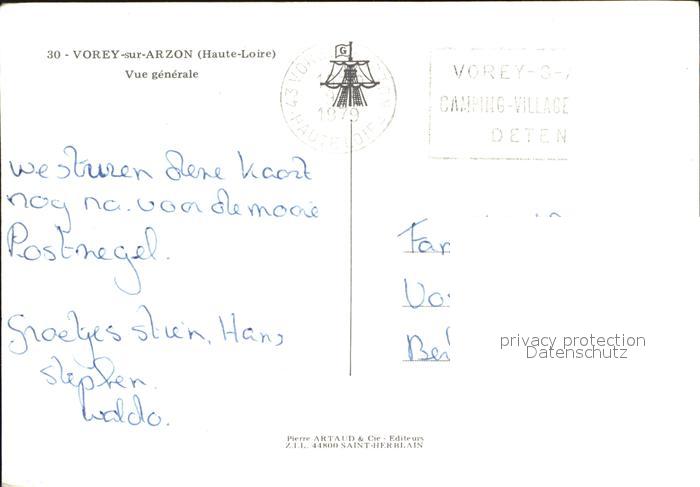 30 - VOREY-sur-ARZON (Haute-Loire)
Vue générale
G
43 VOREY
1979
HAUTE LOIRE
VOREY-S-A
CAMPING-VILLAGE
DETEN
we sturen deze kaart
nog na. voor de mooie
Postzegel.
Groetjes stien, Hans
stephen.
Waldo.
Fam
Vo
Be
privacy protection
Datenschutz
Pierre ARTAUD & Cie - Editeurs
Z.I.L. 44800 SAINT-HERBLAIN